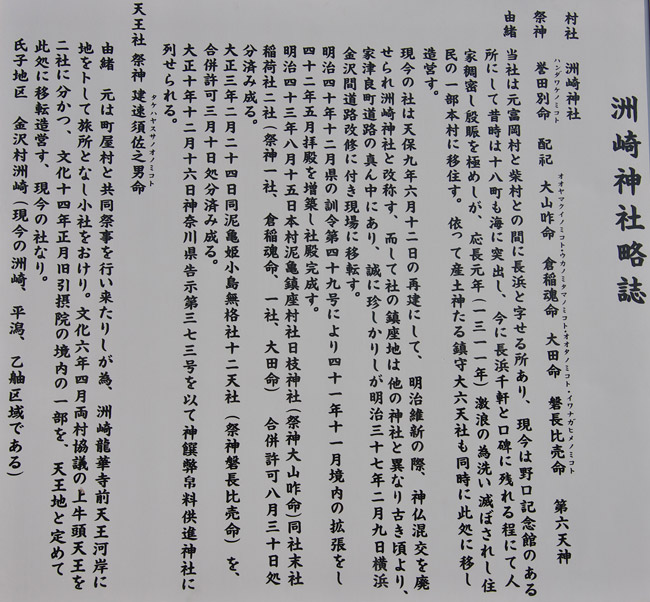 洲崎神社略誌
村社　洲崎神社
祭神　誉田別命　配祀　大山咋命　倉稲魂命　大田命　磐長比売命　第六天神
ハンダワケノミコト　オオヤマクイノミコト・ウカノミタマノミコト・オオタノミコト・イワナガヒメノミコト
由緒　当社は元富岡村と柴村との間に長浜と字せる所あり、現今は野口記念館のある
所にして昔時は十八町も海に突出し、今に長浜千軒と口碑に残れる程にて人
家稠密し殷賑を極めしが、応長元年（一三一一年）激浪の為洗い滅ぼされし住
民の一部本村に移住す。依って産土神たる鎮守大六天社も同時に此処に移し
造営す。
現今の社は天保九年六月十二日の再建にして、明治維新の際、神仏混交を廃
せられ洲崎神社と改称す、而して社の鎮座地は他の神社と異なり古き頃より、
家津良町道路の真ん中にあり、誠に珍しかりしが明治三十七年二月九日横浜
金沢間道路改修に付き現場に移転す。
明治四十年十二月県の訓令第四十九号により四十一年十一月境内の拡張をし
四十二年五月拝殿を増築し社殿完成す。
明治四十三年八月十五日本村泥亀鎮座村社日枝神社（祭神大山咋命）同社末社
稲荷社二社（祭神一社、倉稲魂命、一社、大田命）　合併許可八月三十日処
分済み成る。
大正三年二月二十四日同泥亀姫小島無格社十二天社（祭神磐長比売命）を、
合併許可三月十日処分済み成る。
大正十年十二月十六日神奈川県告示第三七三号を以て神饌幣帛料供進神社に
列せられる。
天王社　祭神　建速須佐之男命
タケハヤスサノオノミコト
由緒　元は町屋村と共同祭事を行い来たりしが為、洲崎龍華寺前天王河岸に
地をトして旅所となし小社をおけり。文化六年四月両村協議の上牛頭天王を
二社に分かつ、文化十四年正月旧引摂院の境内の一部を、天王地と定めて
此処に移転造営す、現今の社なり。
氏子地区　金沢村洲崎（現今の洲崎、平潟、乙舳区域である）